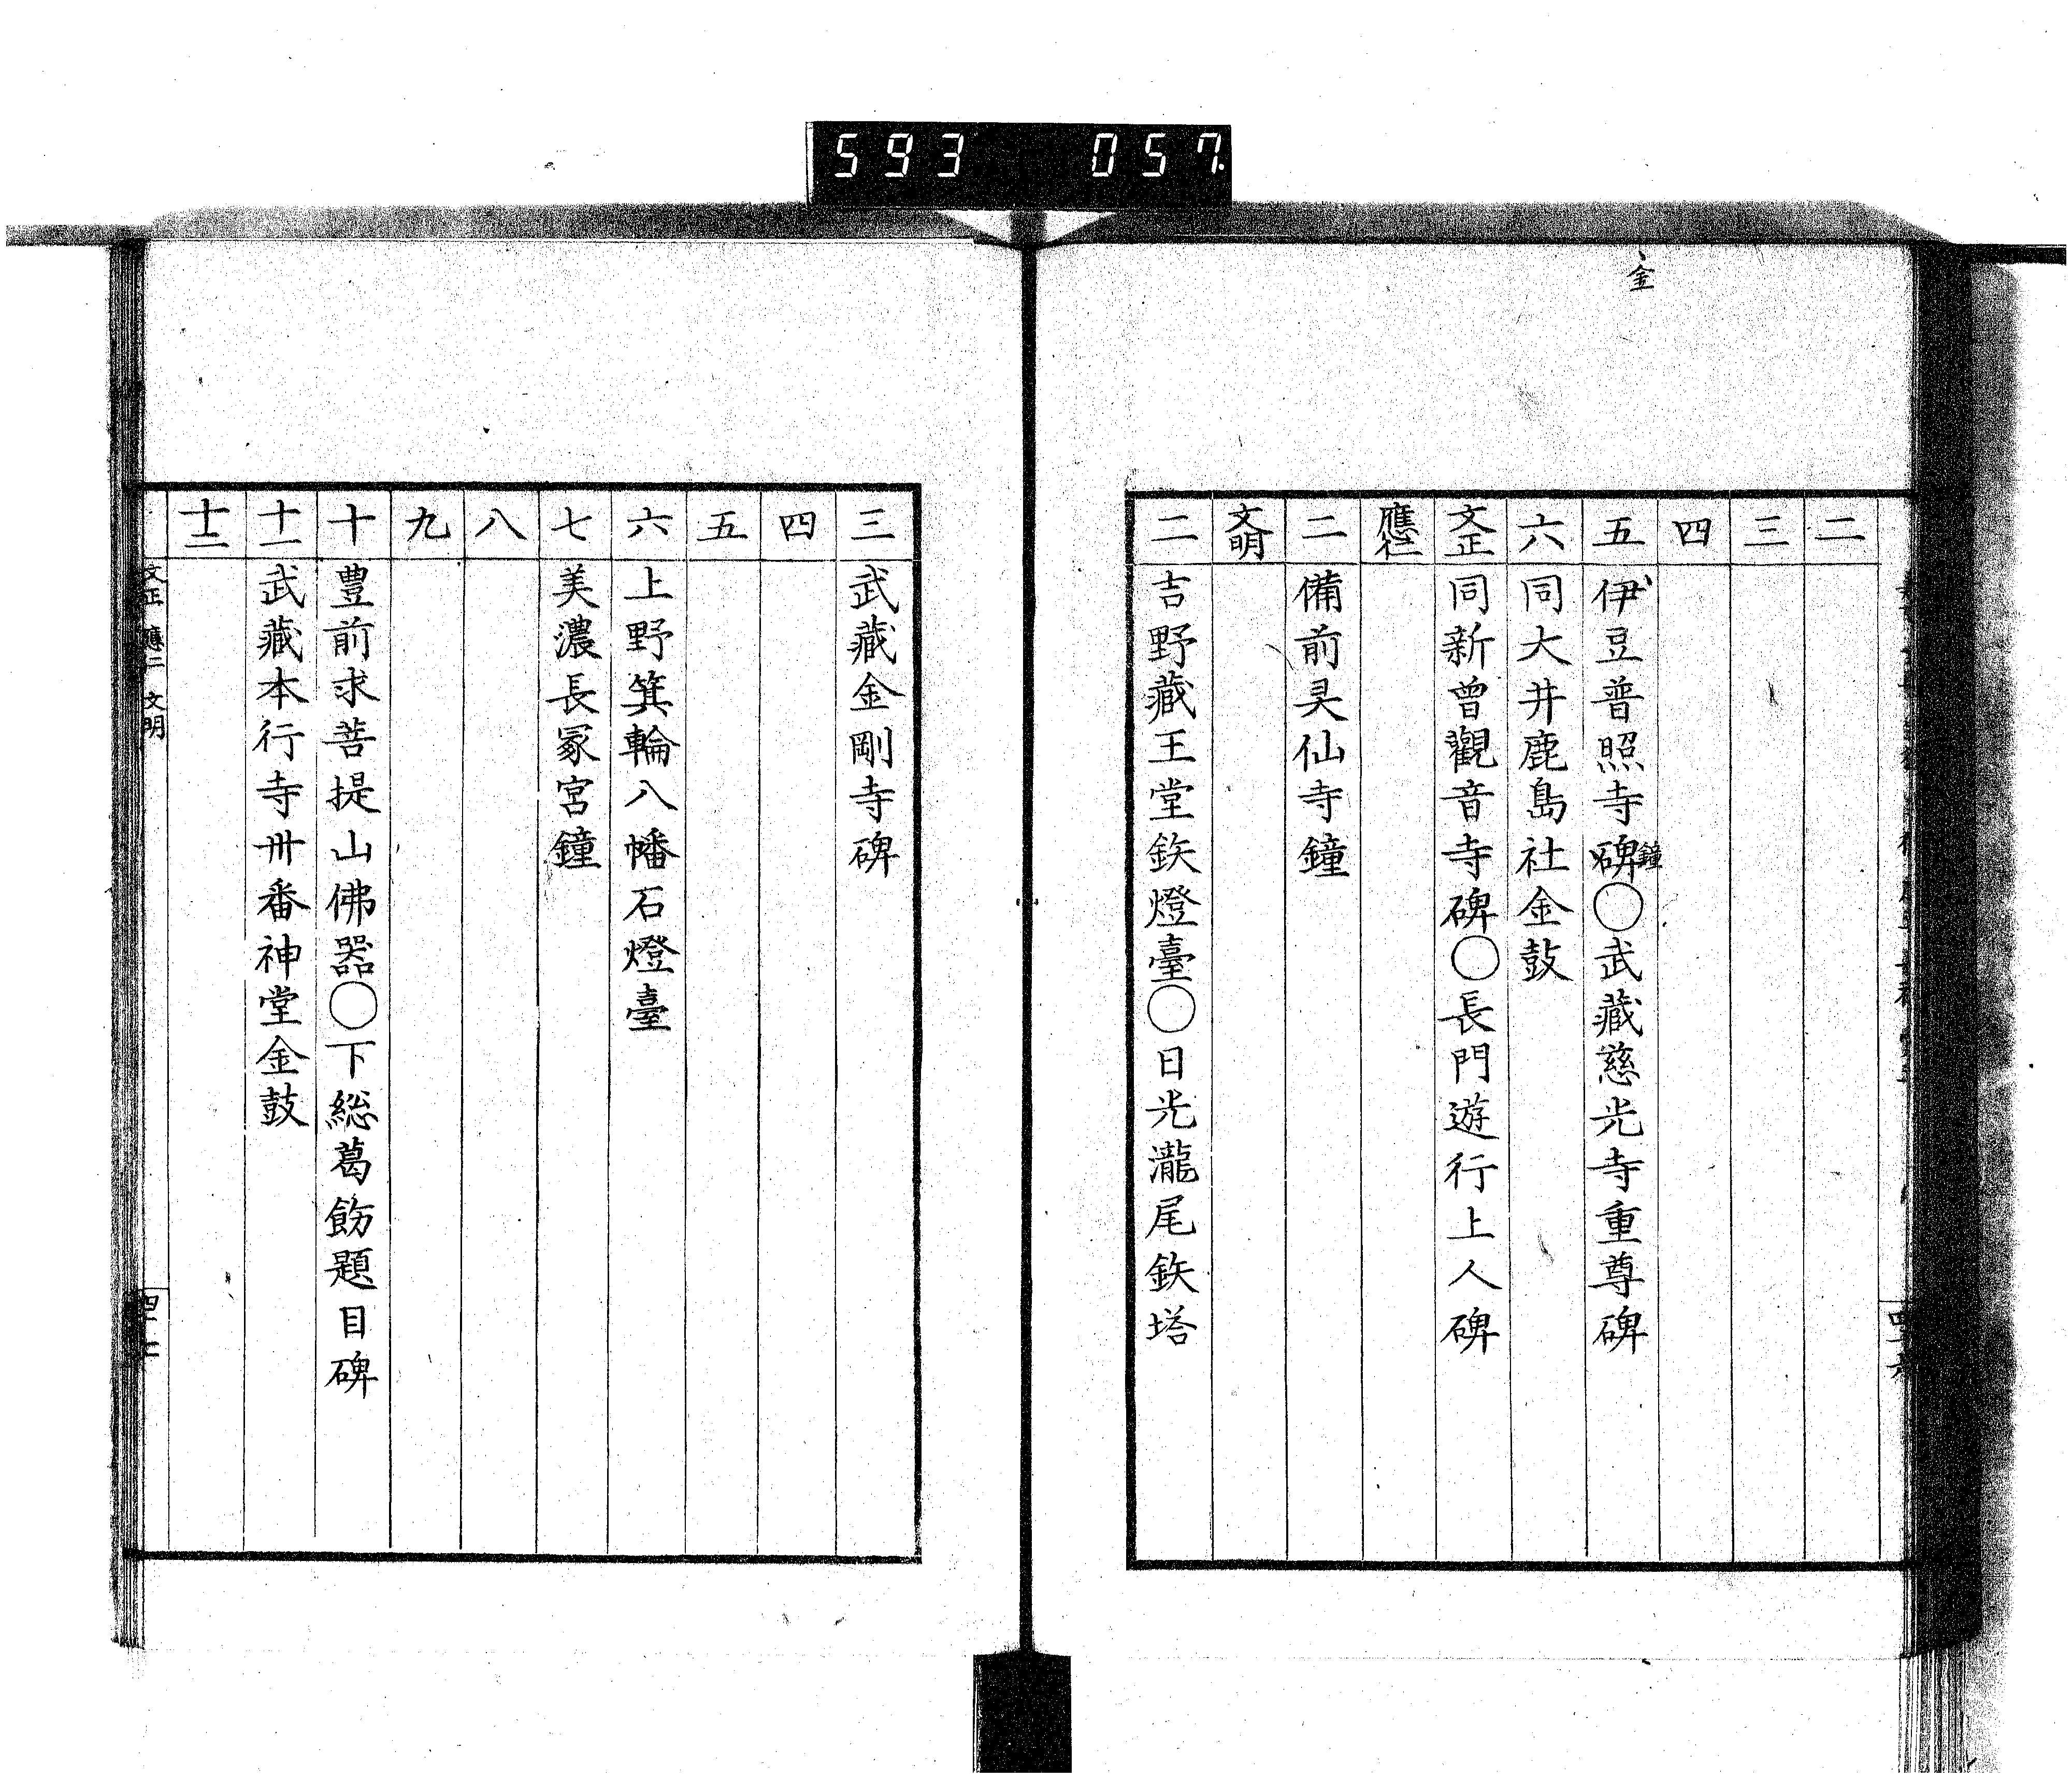 593 057.
、金
二
三
四
五 伊豆普照寺碑鐘〇武藏慈光寺重尊碑
六 同大井鹿島社金鼓
文正 同新曾觀音寺碑〇長門遊行上人碑
應仁
二 備前灵仙寺鐘
文明
二 吉野藏王堂鉃燈臺〇日光瀧尾鉃塔
三 武藏金剛寺碑
四
五
六 上野箕輪八幡石燈臺
七 美濃長冢宮鐘
八
九
十 豊前求菩提山佛器〇下総葛飭題目碑
十一 武藏本行寺卅番神堂金鼓
十二
文正 應仁 文明
四十七